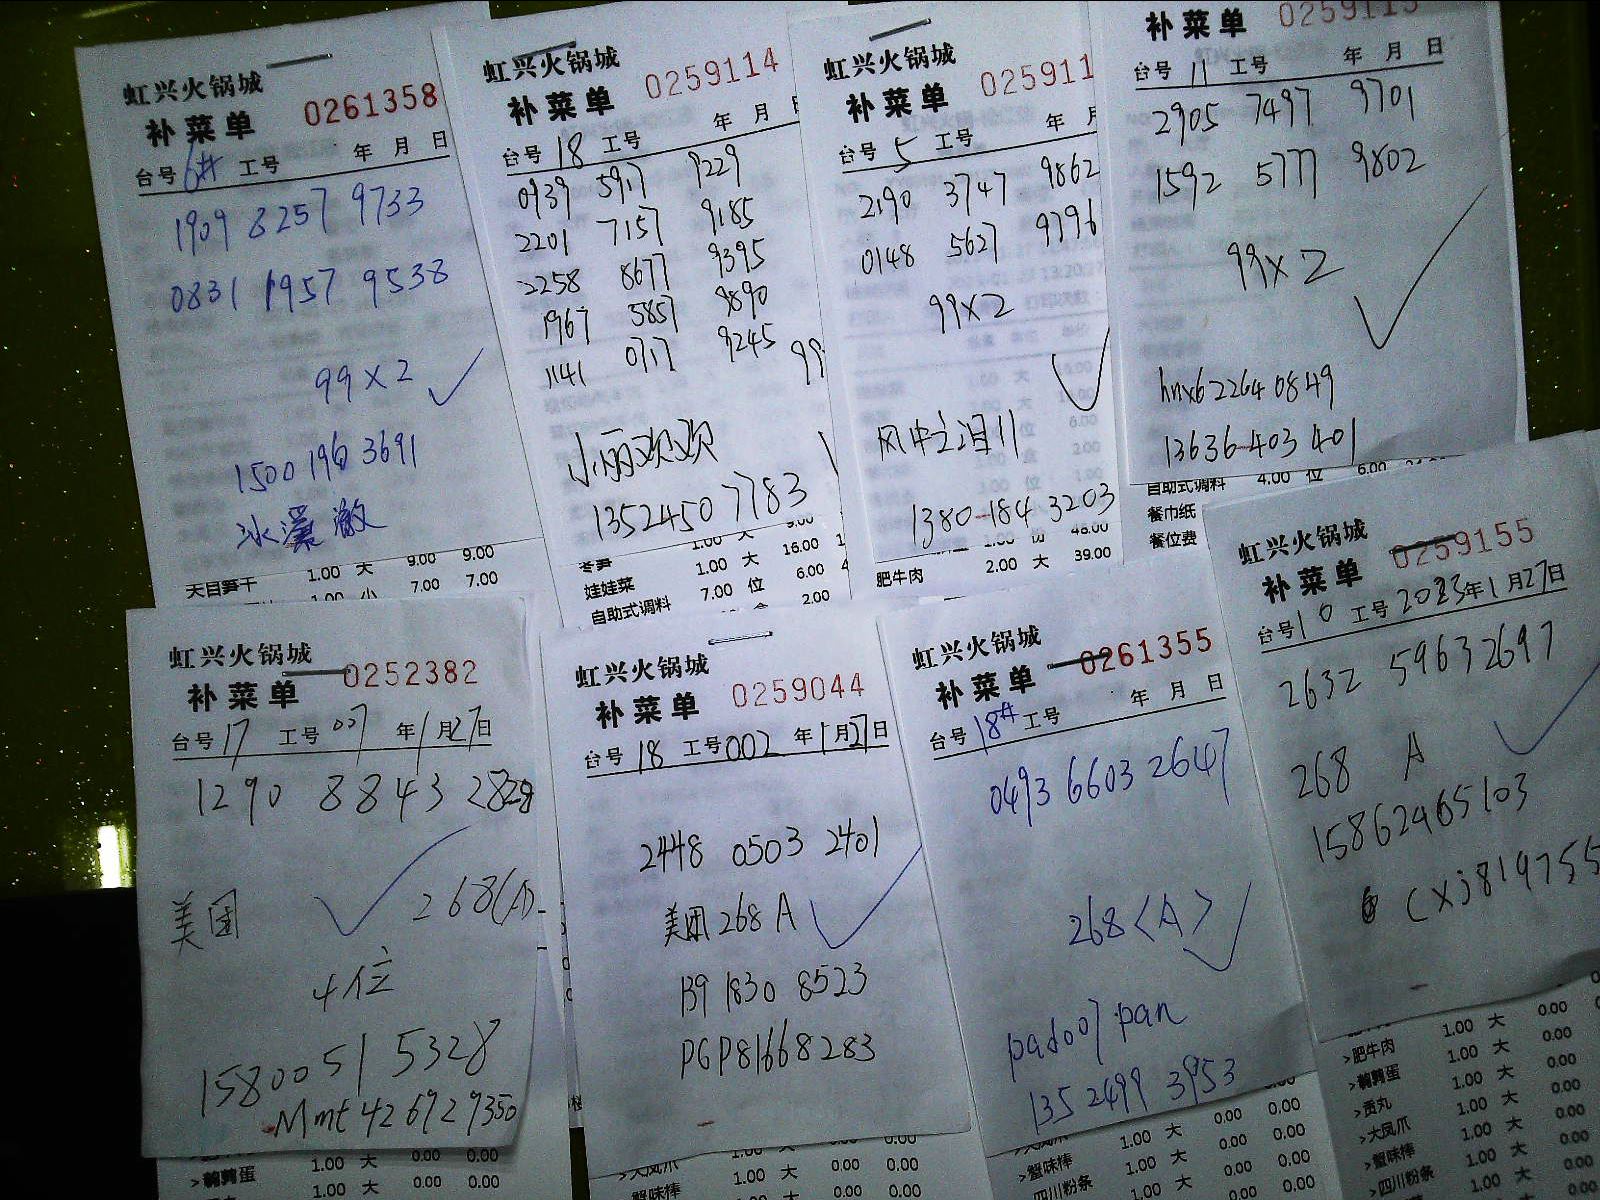 虹兴火锅城
补菜单 0261358
台号 6# 工号 年 月 日
1909 8257 9733
0831 1957 9538
99×2
1500 196 3691
冰 澈
天目笋干 1.00 大 9.00 9.00
1.00 小 7.00 7.00
虹兴火锅城
补菜单 0259114
台号 18 工号 年 月
0939 5917 9229
2201 7157 9185
2258 8677 9395
1967 5857 9890
1141 0717 9245
99
小丽欢欢
1352450 7783
冬笋 1.00 大 9.00
娃娃菜 1.00 大 16.00
自助式调料 7.00 位 6.00
2.00
虹兴火锅城
补菜单 025911
台号 5 工号 年 月
2190 3747 9862
0148 5627 9796
99×2
风中之泪11
1380-184 3203
1.00 份 48.00
肥牛肉 2.00 大 39.00
补菜单 0259115
台号 11 工号 年 月 日
2905 7497 9701
1592 5777 9802
99×2
hnx622640849
13636403401
自助式调料 4.00 位 6.00
餐巾纸
餐位费
虹兴火锅城
补菜单 0252382
台号 17 工号 007 年 1 月 27 日
1290 8843 2828
美团 268(A)
4位
15800515328
Mmt426929350
>鹌鹑蛋 1.00 大 0.00 0.00
1.00 大 0.00 0.00
虹兴火锅城
补菜单 0259044
台号 18 工号 002 年 1 月 27 日
2448 0503 2401
美团 268 A
139 1830 8523
PGP81668283
>大凤爪 1.00 大 0.00 0.00
蟹味棒 1.00 大 0.00 0.00
虹兴火锅城
补菜单 0261355
台号 18# 工号 年 月 日
0493 6603 2647
268<A>
pad007pan
1352499 3953
>大凤爪 1.00 大 0.00 0.00
>蟹味棒 1.00 大 0.00 0.00
四川粉条 1.00 大 0.00 0.00
虹兴火锅城
补菜单 0259155
台号 10 工号 2023年 1 月 27 日
2632 5963 2697
268 A
15862465103
cxj819755
>肥牛肉 1.00 大 0.00
>鹌鹑蛋 1.00 大 0.00
>贡丸 1.00 大 0.00
>大凤爪 1.00 大 0.00
>蟹味棒 1.00 大 0.00
>四川粉条 1.00 大 0.00